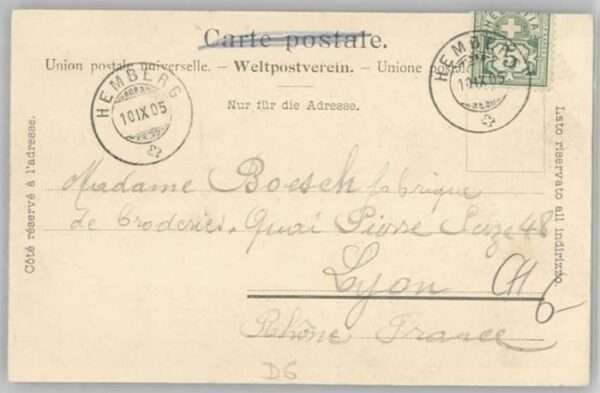 Carte postale.
Union postale universelle. – Weltpostverein. – Unione postal
Nur für die Adresse.
HEMBERG
10 IX 05
HEMBERG
10 IX 05
HELVETIA
5
Côté réservé à l'adresse.
Lato riservato all indirizzo.
Madame Boesch fabrique
de Broderies, Quai Pierre Seize 48
Lyon
6
Rhône France
D6